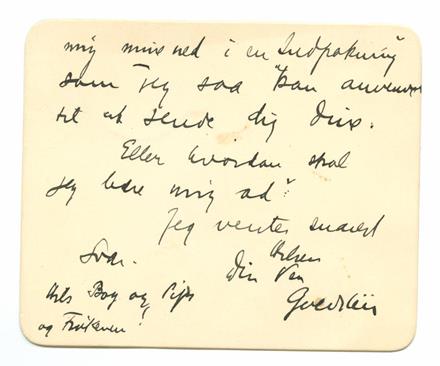 mig mine ned i en Indpakning
som jeg saa kan anvende
til at sende dig dine.
Eller hvordan skal
jeg bære mig ad?
Jeg venter snarest
Svar. Hilsen
Din Ven
Hils Boy og
og Frøkenen!